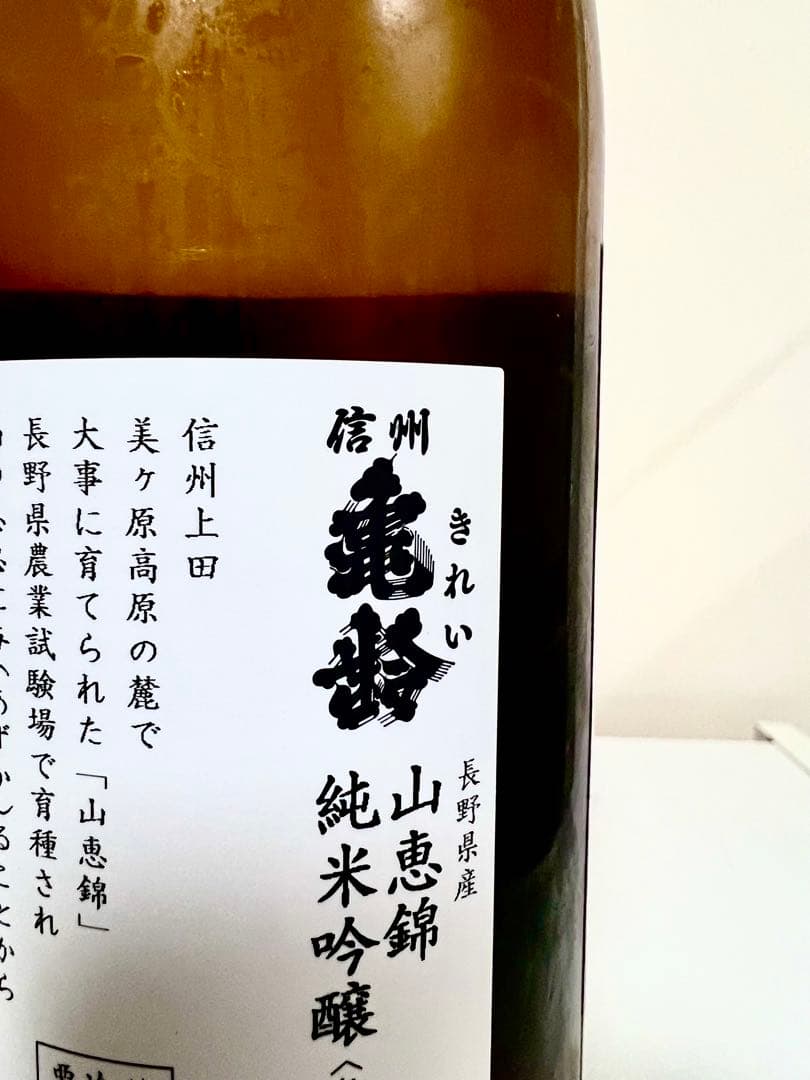 信州
亀齢
きれい
長野県産
山恵錦
純米吟醸
信州上田
美ヶ原高原の麓で
大事に育てられた「山恵錦」
長野県農業試験場で育種され